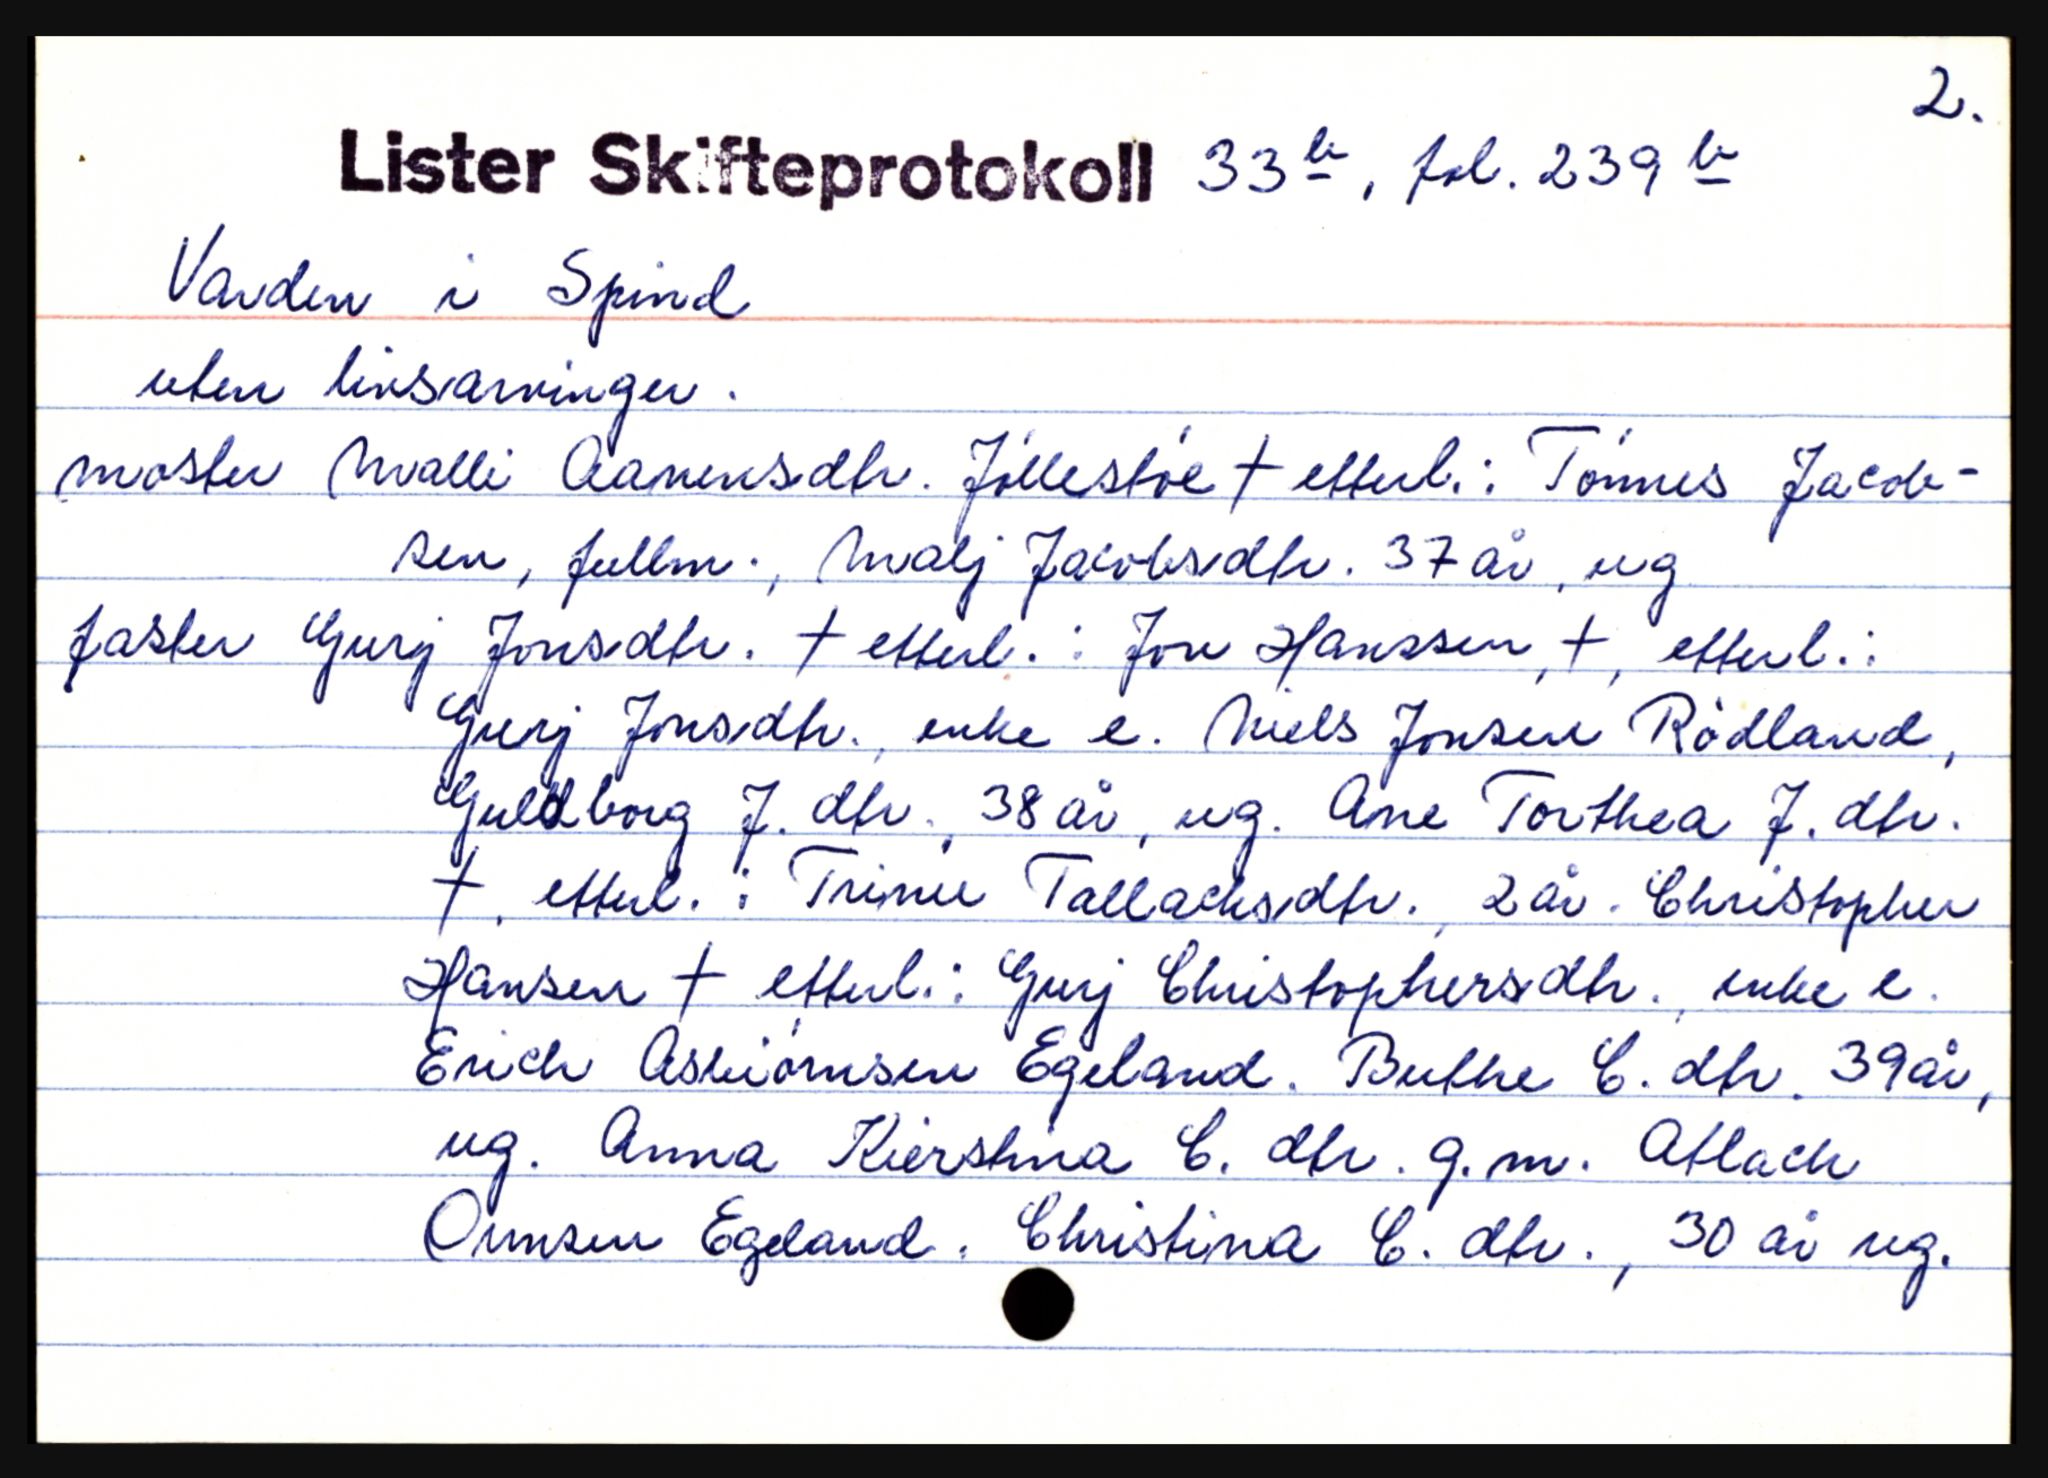 2.
Lister Skifteprotokoll 33 b, fol. 239 b
Varden i Spind
uten livsarvinger.
moster Malli Aanensdtr. Jóllestóe † etterl.: Tónnes Jacob-
sen, fullm., Malj Jacobsdtr. 37 år, ug
faster Gurj Jonsdtr. † etterl.: Jon Hanssen, †, etterl.:
Gurj Jonsdtr., enke e. Niels Jonsen Ródland,
Guldborg J. dtr., 38 år, ug. Ane Torthea J. dtr.
†, etterl.: Trine Tallachsdtr., 2 år. Christopher
Hansen † etterl.: Gurj Christophersdtr., enke e.
Erich Asbiórnsen Egeland. Berthe C. dtr. 39 år,
ug. Anna Kierstina C. dtr. g.m. Atlach
Omnsen Egeland. Christina C. dtr., 30 år ug.